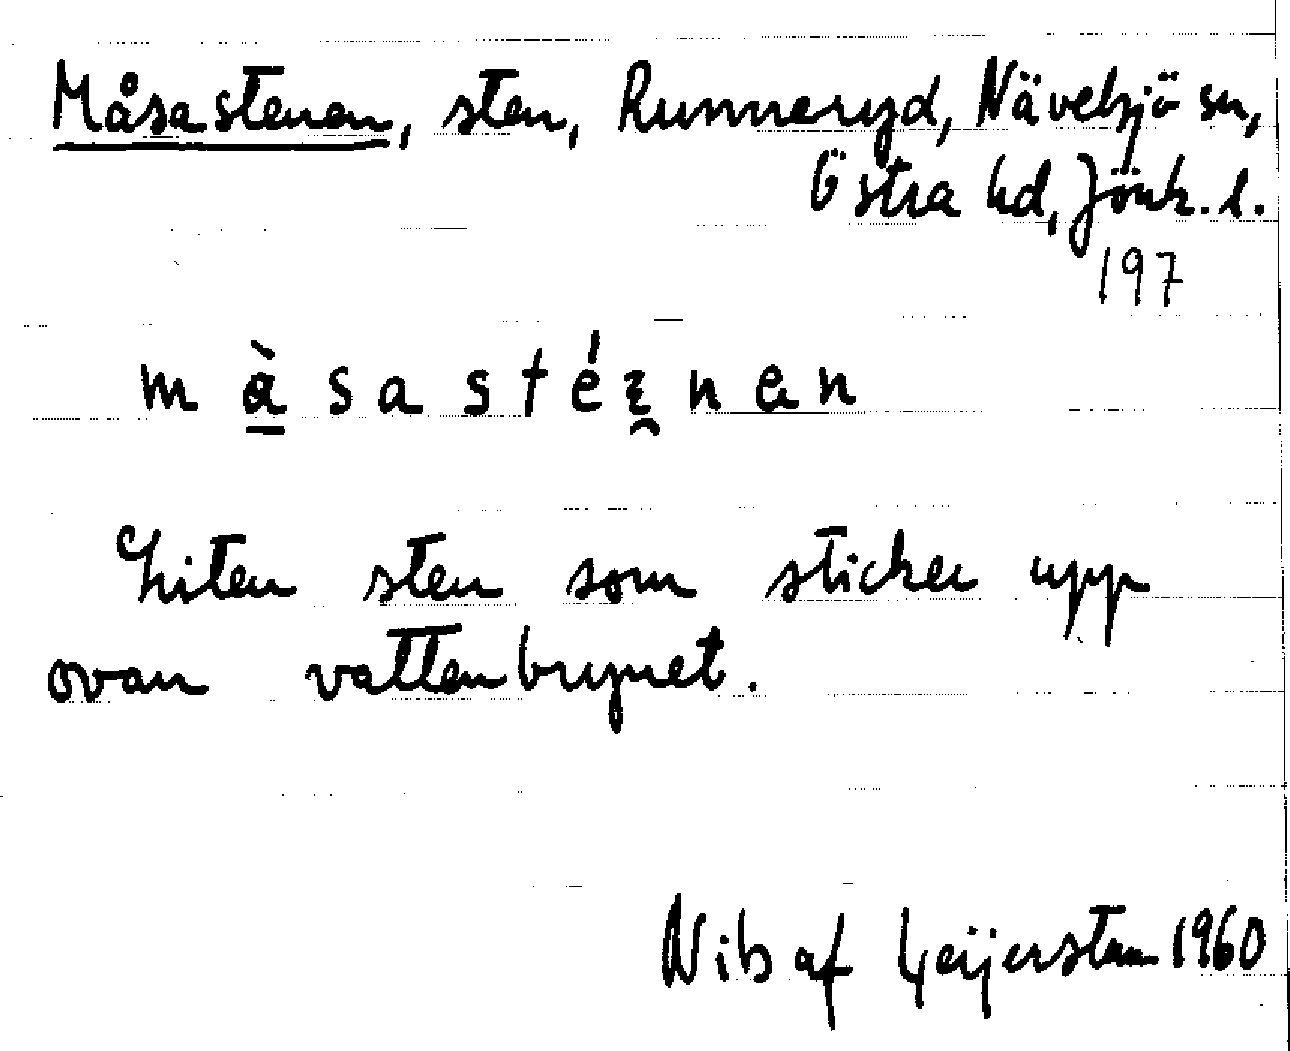 Måsastenen, sten, Runneryd, Nävelsjö sn,
Östra hd, Jönk. l.
197
måsasténen
Liten sten som sticker upp
ovan vattenbrynet.
Nils af Geijerstam 1960